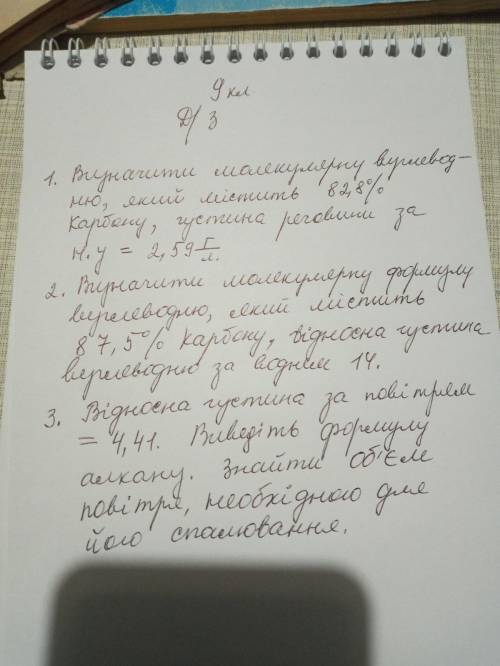 9 кл
Д/З
1. Визначити молекулярну вуглевод-
ню, який містить 82,8%
Карбону, густина речовини за
н.у = 2,59 г/л.
2. Визначити молекулярну формулу
вуглеводню, який містить
87,5% Карбону, відносна густина
вуглеводню за воднем 14.
3. Відносна густина за повітрям
= 4,41. Виведіть формулу
алкану. Знайти об'єм
повітря, необхідного для
його спалювання.